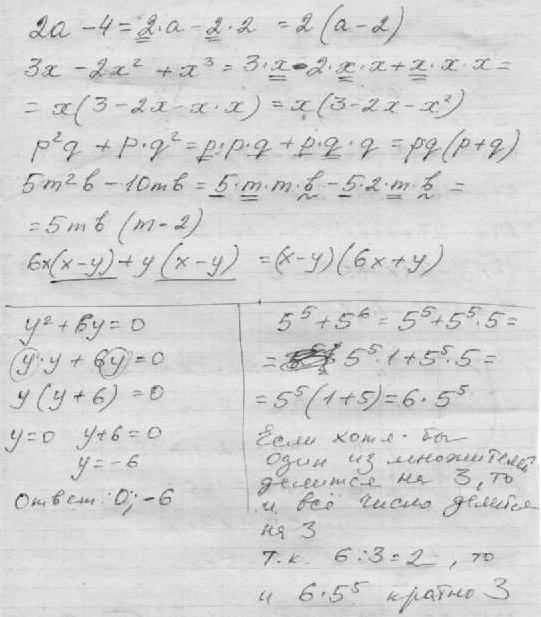 2a - 4 = 2·a - 2·2 = 2(a-2)
3x - 2x² + x³ = 3·x - 2·x·x + x·x·x =
= x(3-2x-x·x) = x(3-2x-x²)
p²q + p·q² = p·p·q + p·q·q = pq(p+q)
5m²b - 10mb = 5·m·m·b - 5·2·m·b =
= 5mb (m-2)
6x(x-y) + y(x-y) = (x-y)(6x+y)
y² + 6y = 0
y·y + 6y = 0
y(y+6) = 0
y=0 y+6=0
y=-6
Ответ: 0; -6
5⁵ + 5⁶ = 5⁵ + 5⁵·5 =
= 5⁵·1 + 5⁵·5 =
= 5⁵(1+5) = 6·5⁵
Если хотя бы
один из множителей
делится на 3, то
и всё число делится
на 3
т.к. 6:3=2, то
и 6·5⁵ кратно 3